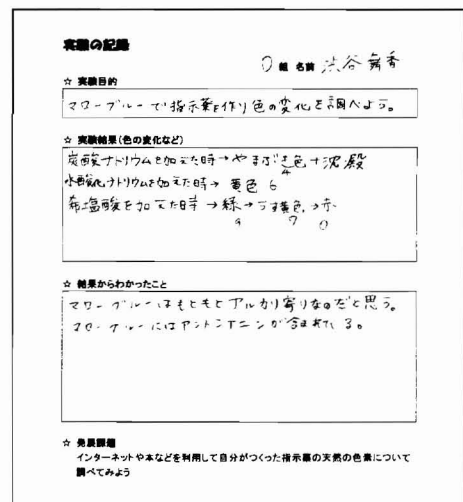 実験の記録
組 名前 渋谷 舞香
☆ 実験目的
マローブルーで指示薬を作り色の変化を調べよう。
☆ 実験結果(色の変化など)
炭酸ナトリウムを加えた時→やまぶき色+沈澱
4
水酸化ナトリウムを加えた時→ 黄色 6
希塩酸を加えた時 →緑→うす黄色→赤
9 7 0
☆ 結果からわかったこと
マローブルーはもともとアルカリ寄りなのだと思う。
マローブルーにはアントシアニンが含まれている。
☆ 発展課題
インターネットや本などを利用して自分がつくった指示薬の天然の色素について
調べてみよう